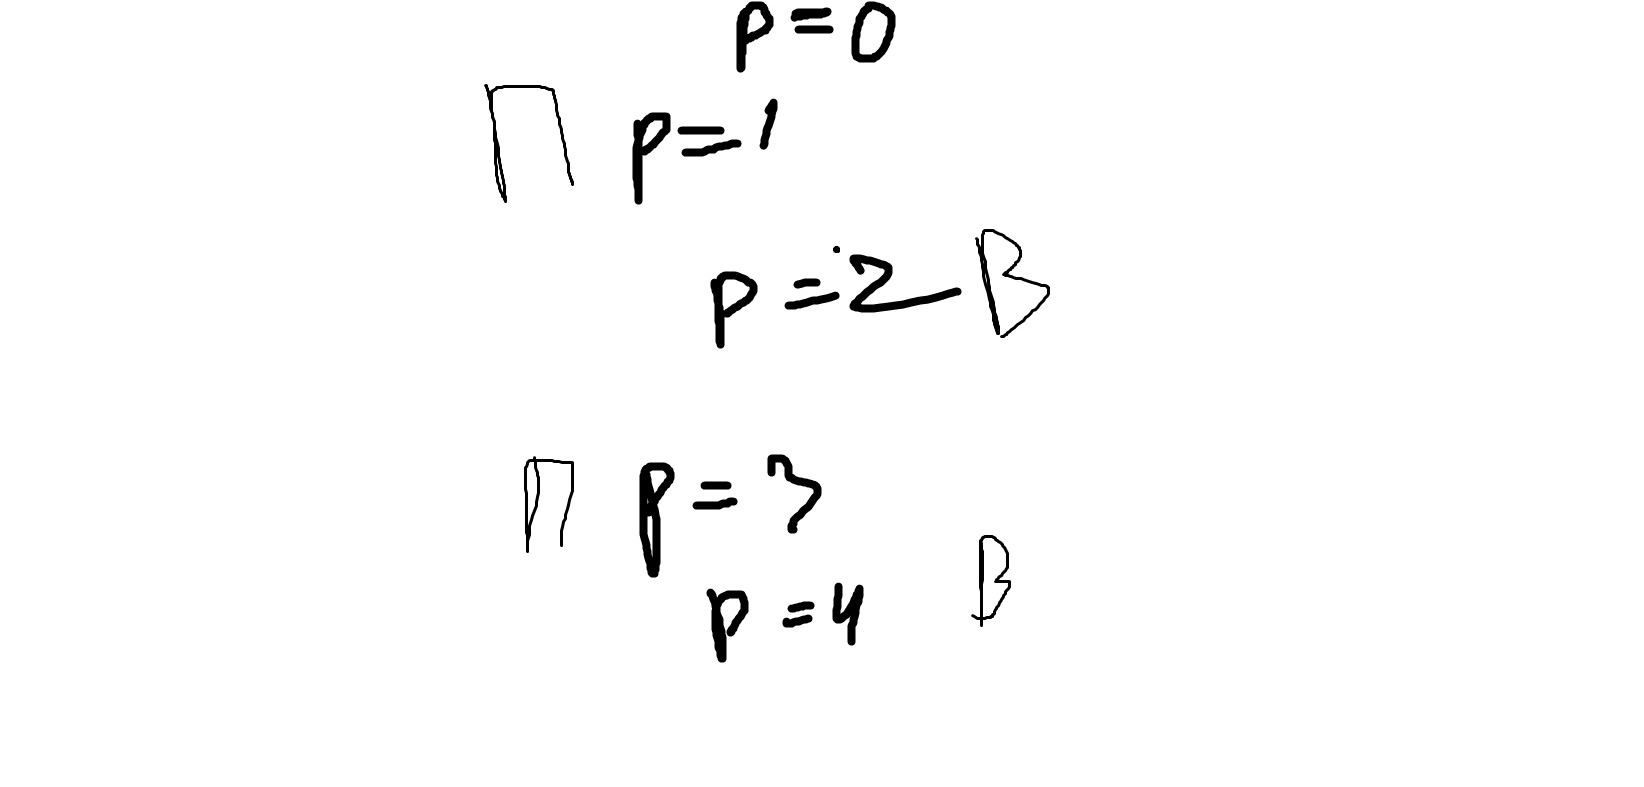 p = 0
П p = 1
p = 2 В
П p = 3
p = 4 В